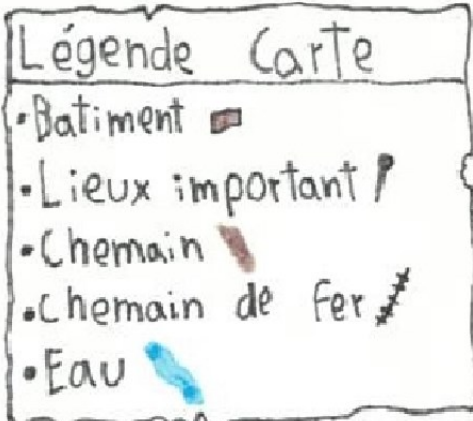 Légende Carte
•Batiment
•Lieux important
•Chemain
•Chemain de fer
•Eau